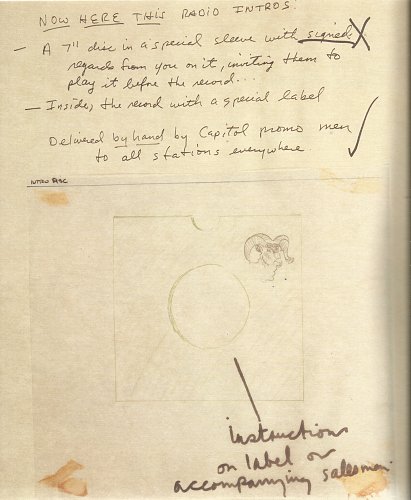 NOW HERE THIS RADIO INTROS:
— A 7" disc in a special sleeve with signed
regards from you on it, inviting them to
play it before the record...
— Inside, the record with a special label
Delivered by hand by Capitol promo men
to all stations everywhere.
INTRO DISC
instructions
on label or
accompanying salesman